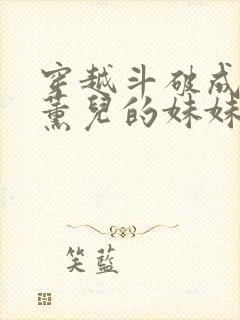 穿越斗破成
薰兒的妹妹
笑藍